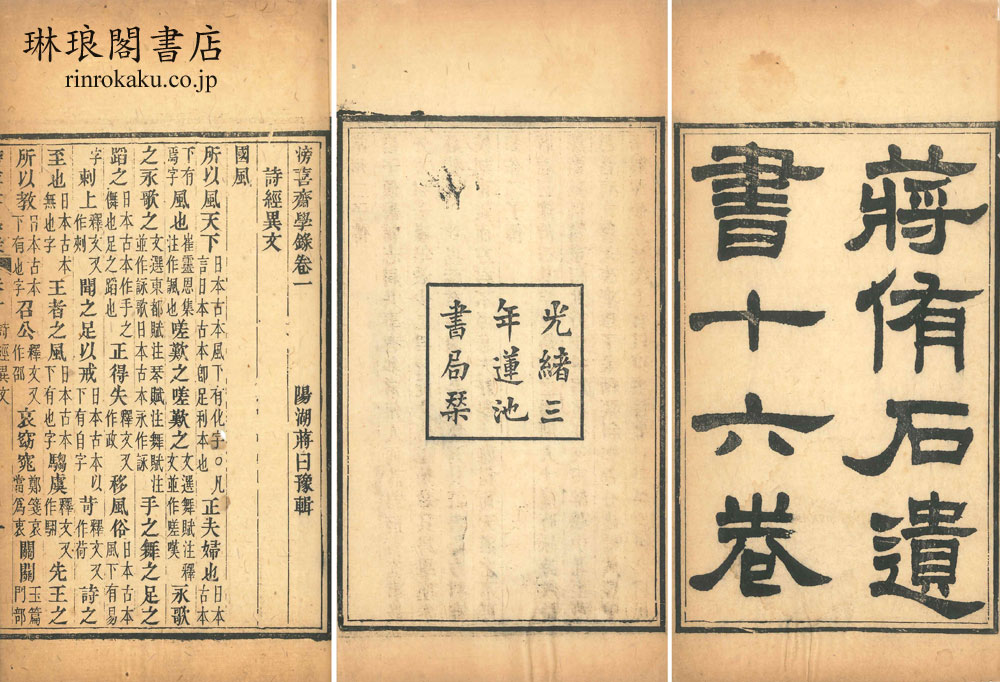 琳琅閣書店
rinrokaku.co.jp
蔣侑石遺
書十六卷
光緒三
年蓮池
書局栞
滂喜齋學錄卷一 陽湖蔣曰豫輯
詩經異文
國風
所以風天下日本古本風下有化字○凡言日本古本卽足利本也正夫婦也日本古本
下有焉字風也崔靈恩集注作諷也嗟歎之嗟歎之文選舞賦注釋文並作嗟嘆永歌
之永歌之文選東都賦注琴賦注舞賦注並作詠歌日本古本永作詠手之舞之足之
蹈之日本古本作手之儛也足之蹈也正得失釋文又作政移風俗日本古本風下有易
字刺上釋文又作刾聞之足以戒日本古本以下有自字苛釋文又作荷詩之
至也日本古本無也字王者之風日本古本下有也字騶虞釋文又作騆先王之
所以教日本古本下有也字召公釋文又作邵哀窈窕鄭箋哀當爲衷關關玉篇門部
詩經異文